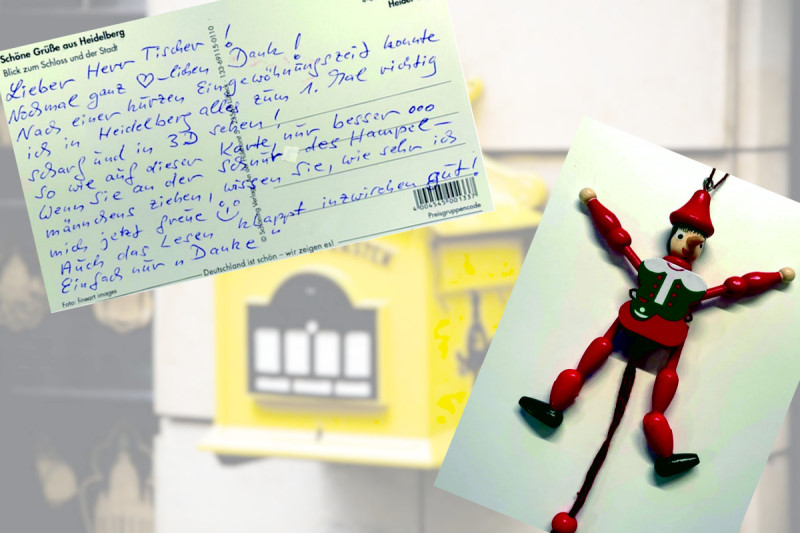 Schöne Grüße aus Heidelberg
Blick zum Schloss und der Stadt
Heidel
Lieber Herr Tischer!
Nochmal ganz ♡-lichen Dank!
Nach einer kurzen Eingewöhnungszeit konnte
ich in Heidelberg alles zum 1. Mal richtig
scharf und in 3D sehen!
So wie auf dieser Karte, nur besser ooo
Wenn Sie an der Schnur des Hampel-
männchens ziehen, wissen Sie, wie sehr ich
mich jetzt freue ☺
Auch das Lesen klappt inzwischen gut!
Einfach nur "Danke"
4 004545 001337
Preisgruppencode
Deutschland ist schön – wir zeigen es!
Foto: finwart images